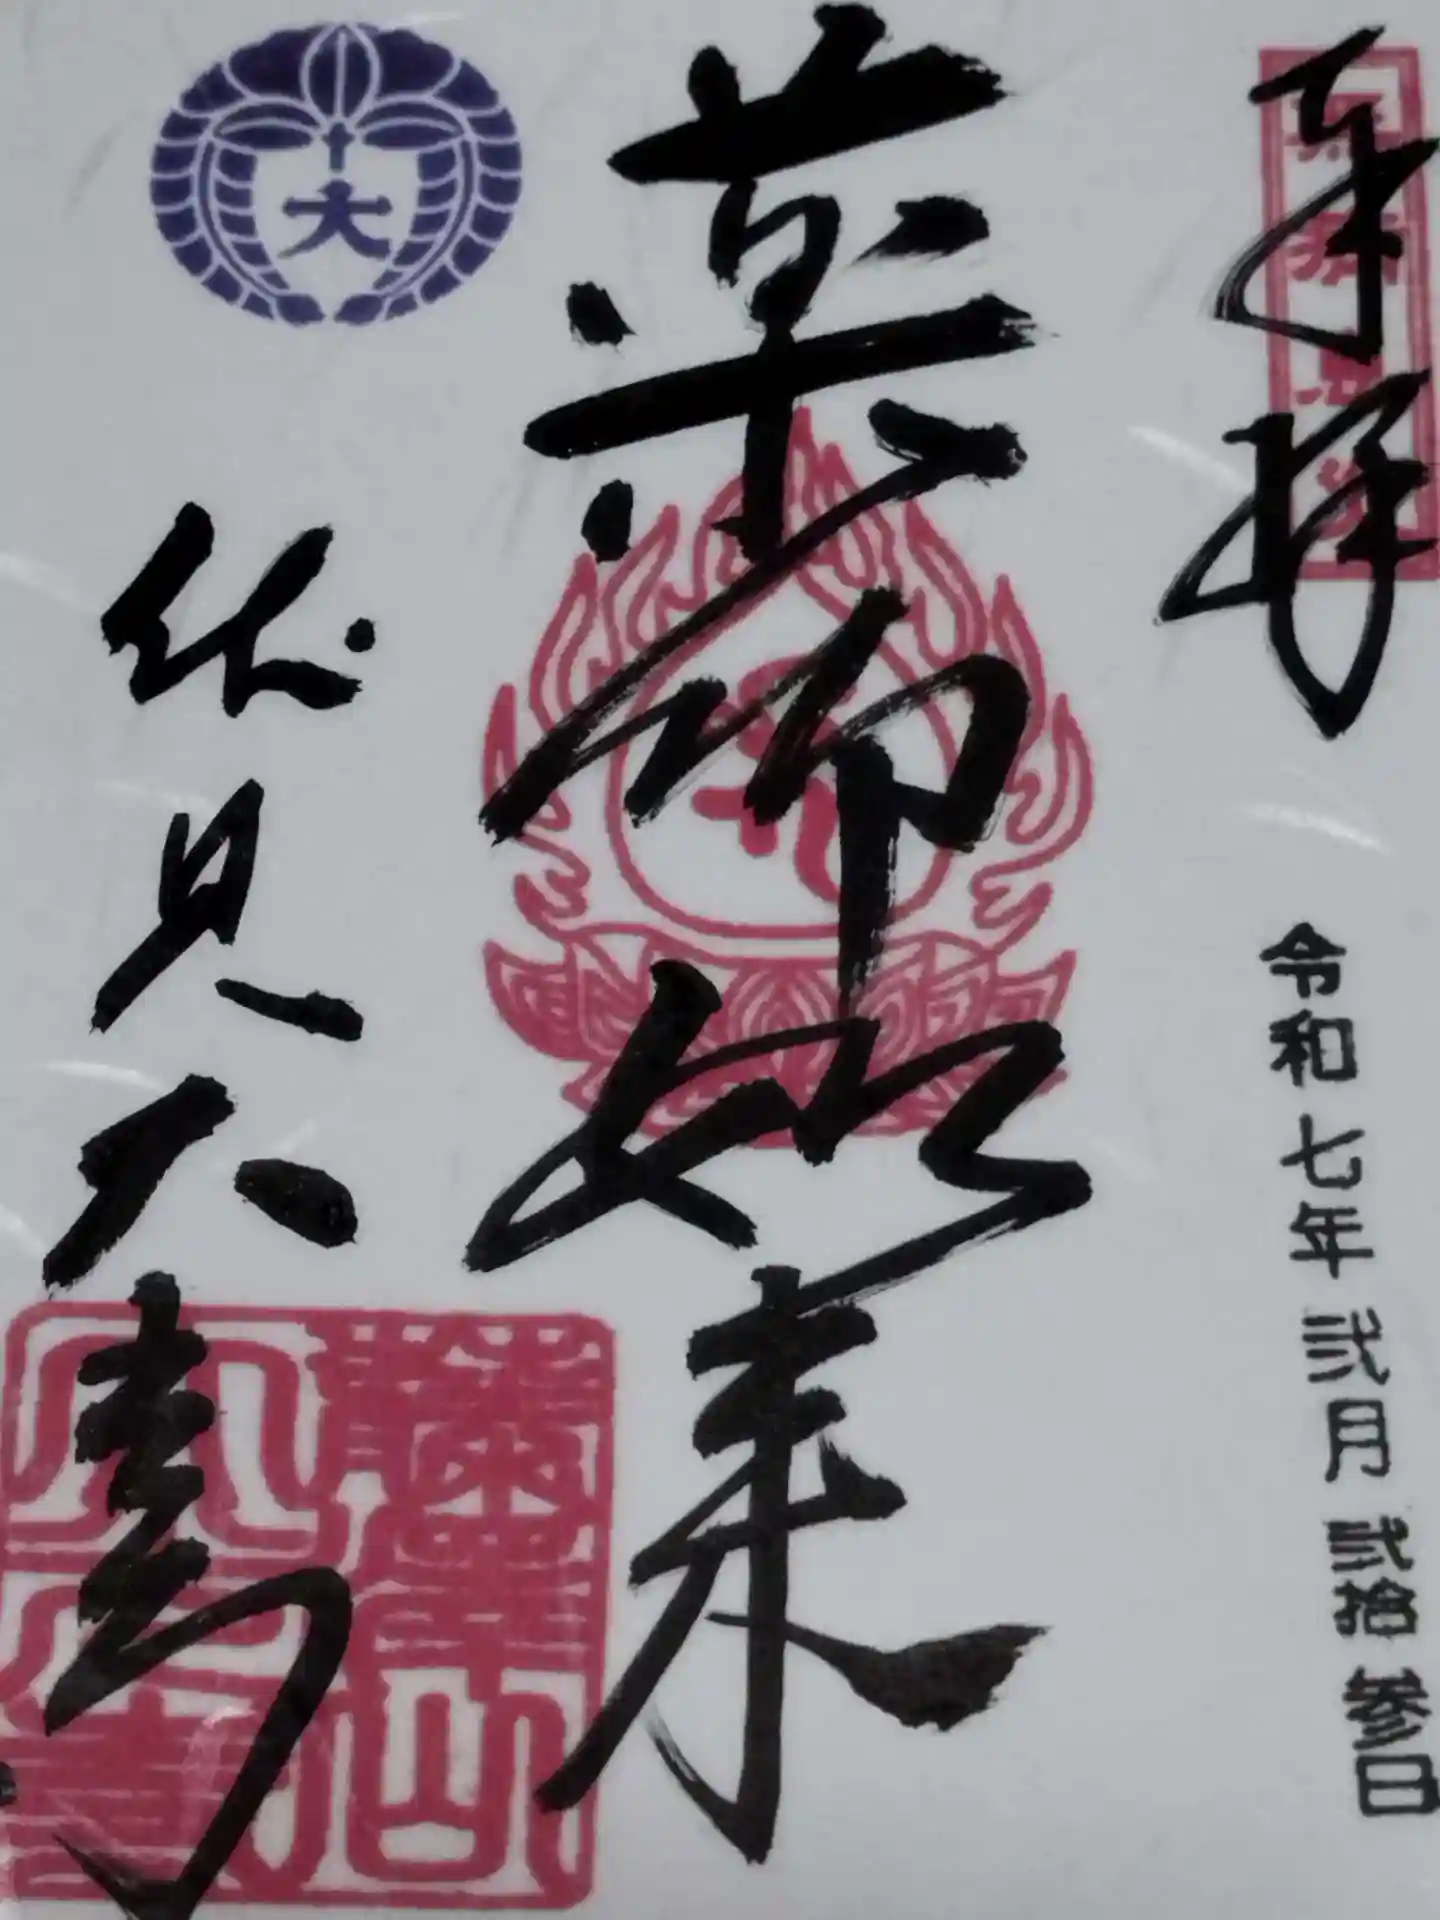 奉拝
令和七年弐月弐拾参日
薬師如来
大
伏見大